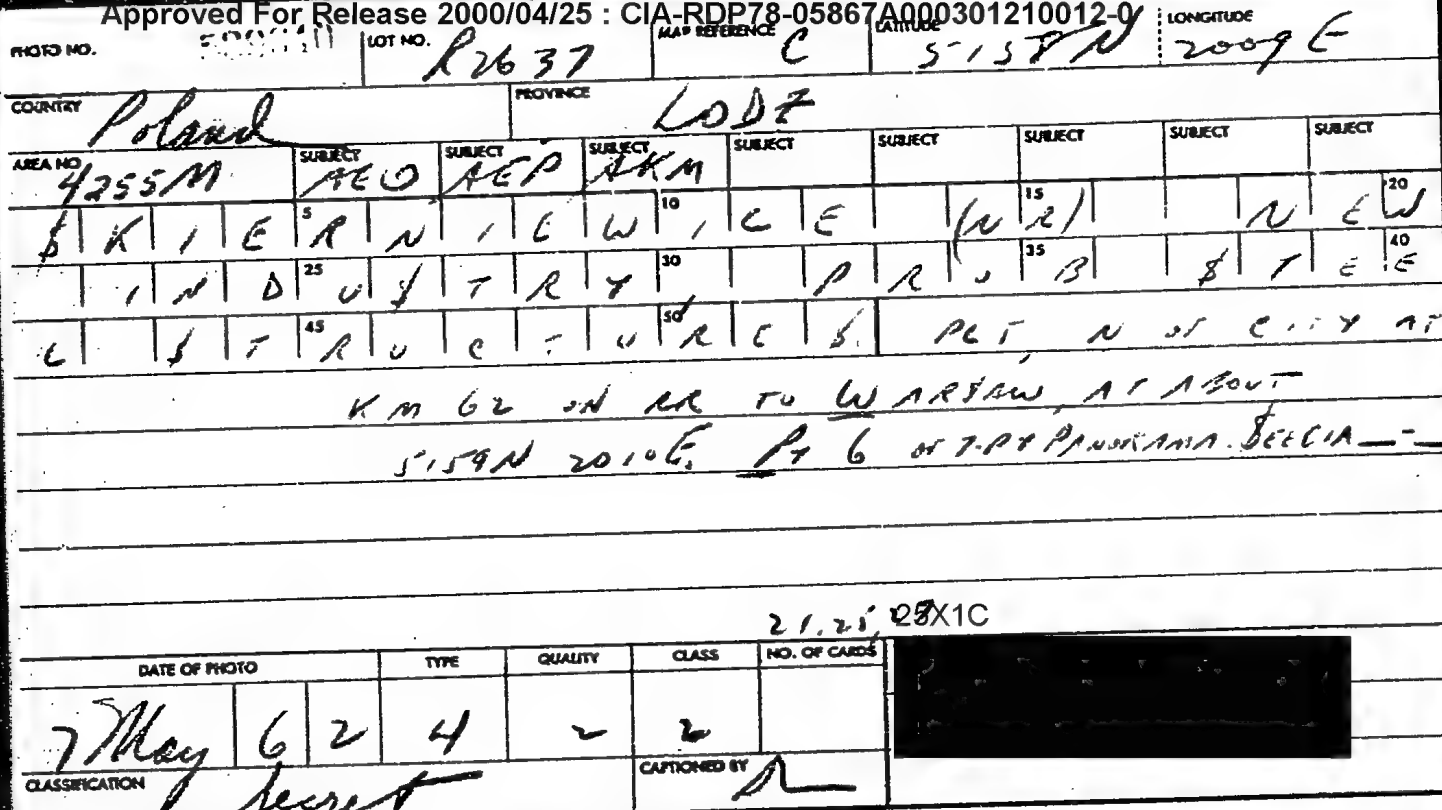 Approved For Release 2000/04/25 : CIA-RDP78-05867A000301210012-0
PHOTO NO. LOT NO. R2637 MAP REFERENCE C LATITUDE 5158N LONGITUDE 2009E
COUNTRY Poland PROVINCE LODZ
AREA NO 4255M SUBJECT AEO SUBJECT AEP SUBJECT AKM SUBJECT SUBJECT SUBJECT SUBJECT SUBJECT
$KIE 5 RNIEW 10 ICE (N 15 R) NE 20 W
IND 25 U$TRY 30 PRO 35 B $TE 40 E
L $T 45 RUCTU 50 RE$. PCT N OF CITY AT
KM 62 ON RR TO WAR$AW, AT ABOUT
5159N 2010E. PT 6 OF 7-PT PANORAMA.
21, 25, 25X1C
DATE OF PHOTO TYPE QUALITY CLASS NO. OF CARDS
7 May 62 4 2 2
CLASSIFICATION Secret CAPTIONED BY